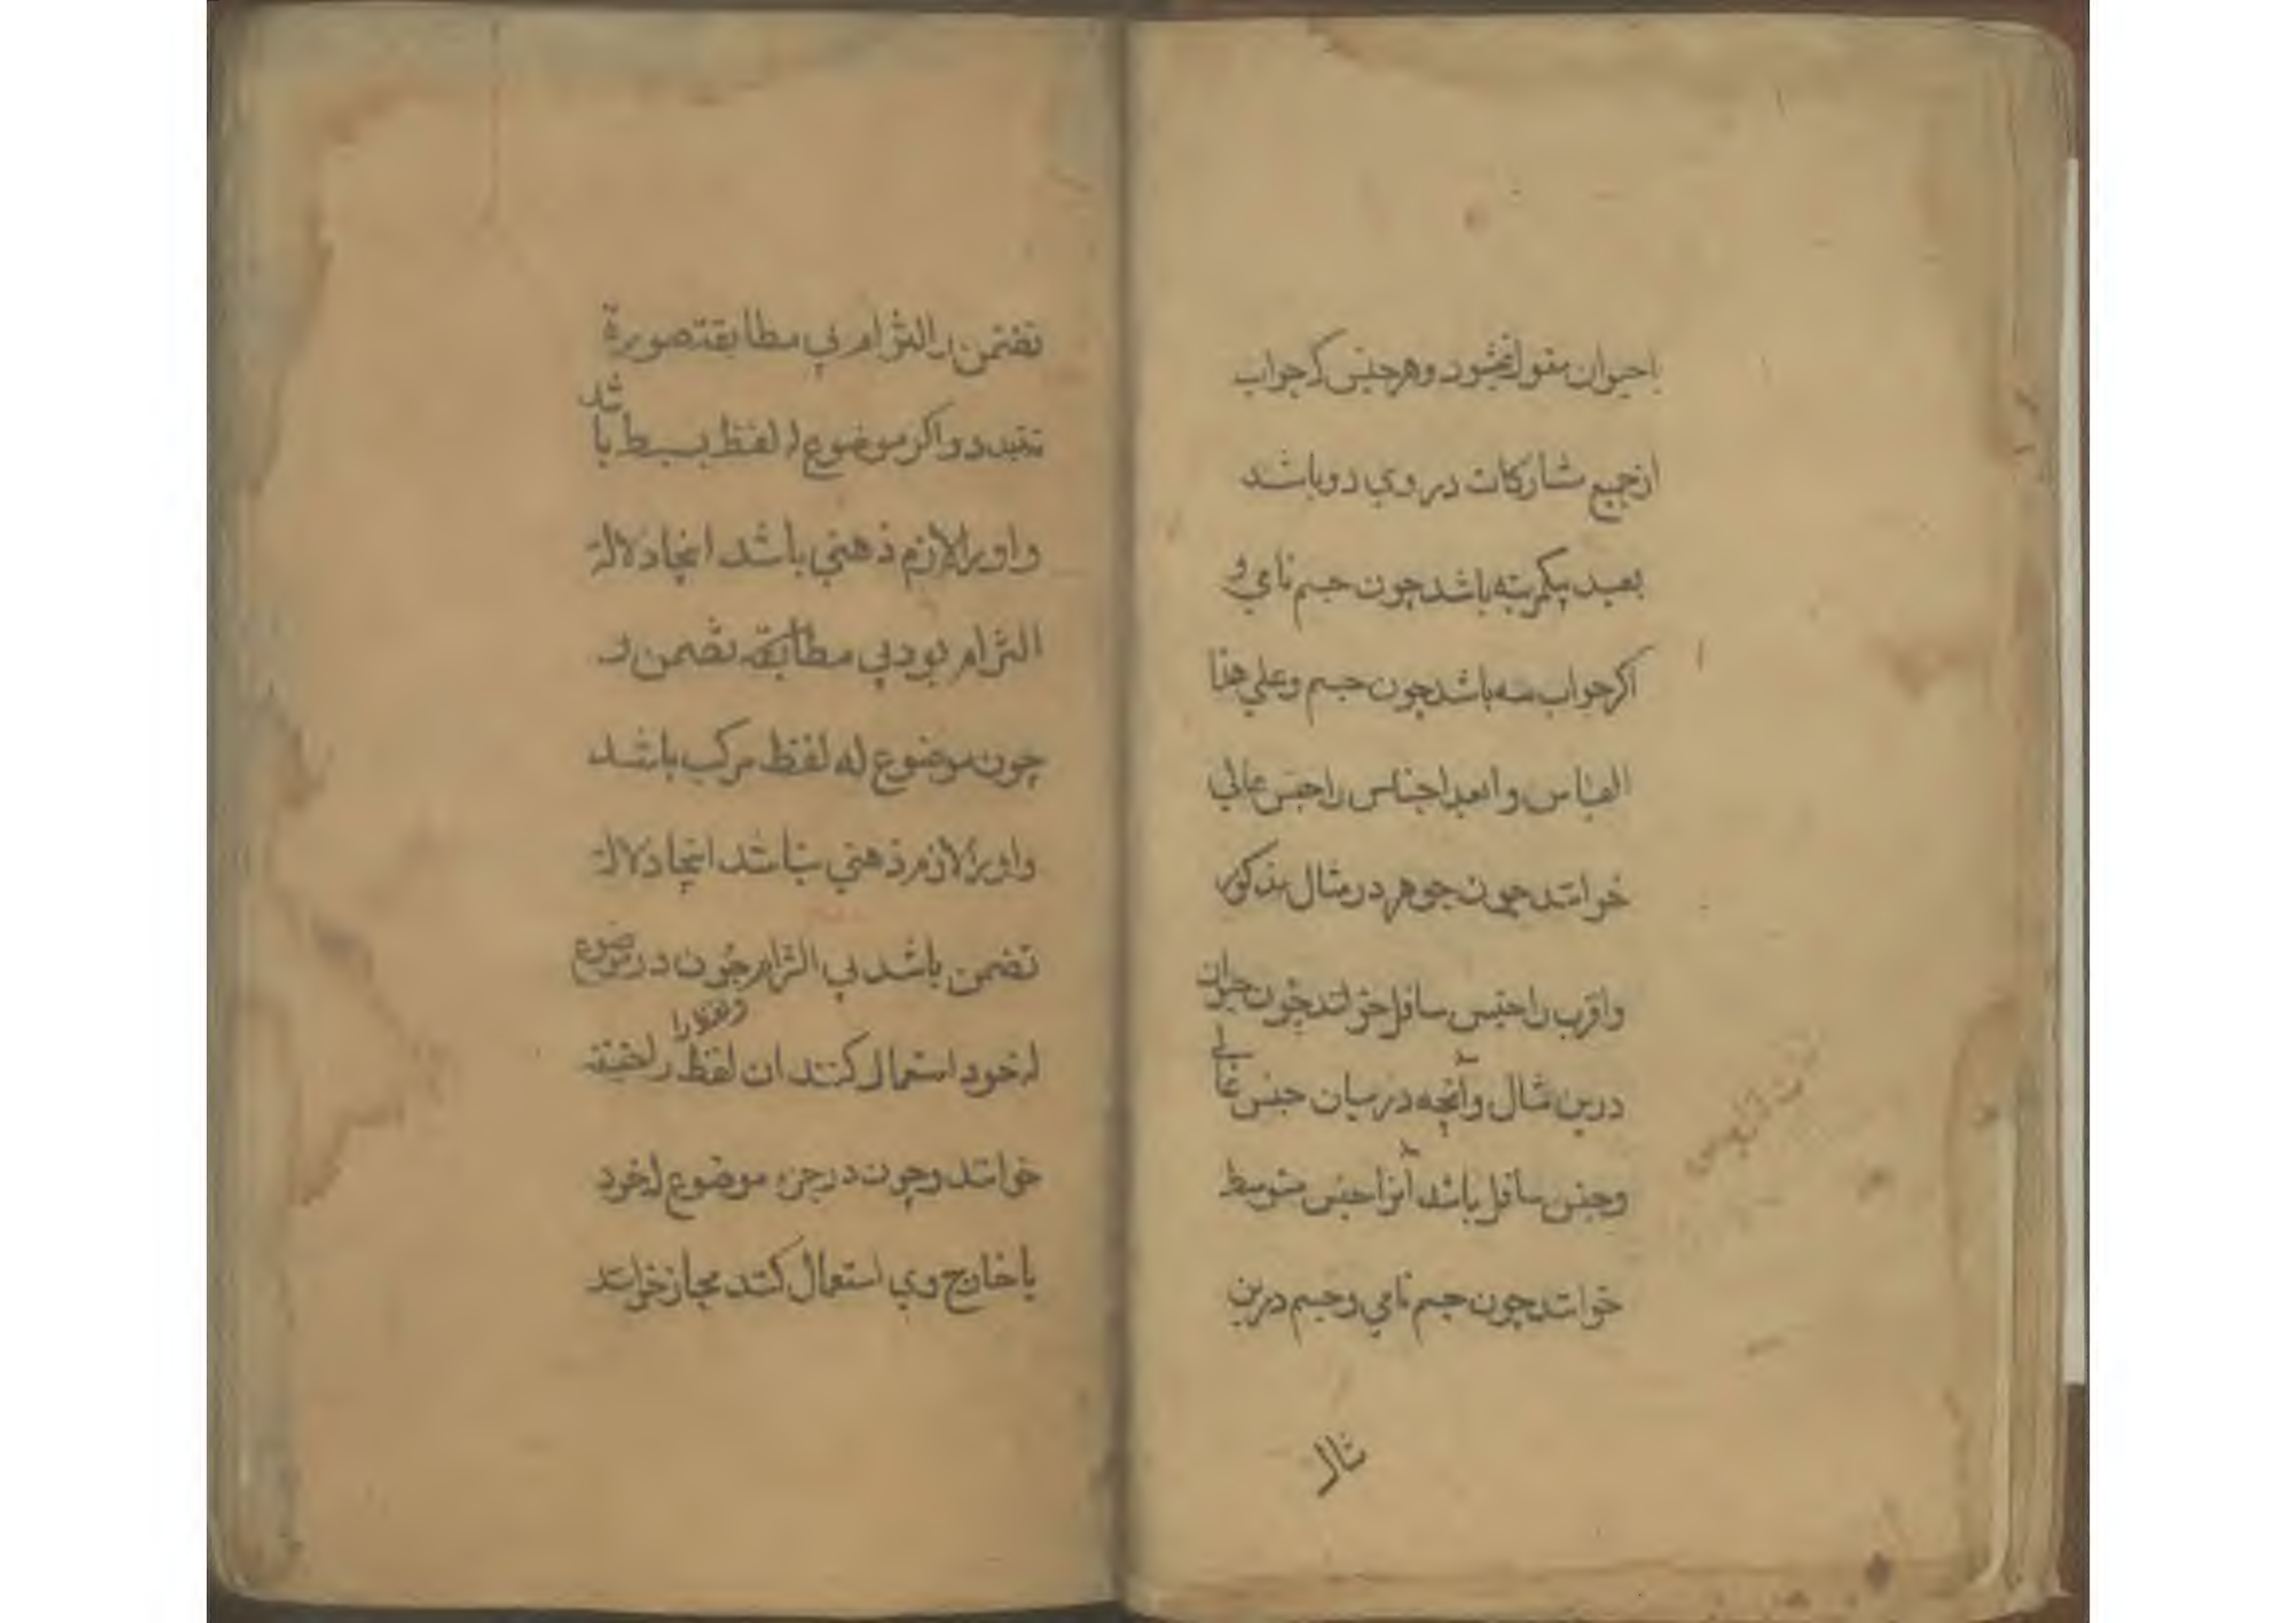 با حیوان مقول نمیشود و هر جنس که جواب
از جمیع مشارکات در وي دو باشد
بعید بیکمرتبه باشد چون جسم نامي و
اکر جواب سه باشد چون جسم وعلي هذا
القیاس و ابعد اجناس را جنس عالي
خوانند همچون جوهر در مثال مذکور
واقرب را جنس سافل خوانند چون حیوان
درین مثال وآنچه در میان جنس عالي
وجنس سافل باشد آنرا جنس متوسط
خوانند چون جسم نامي وجسم درین
مثال
تضمن و التزام بي مطابقه صورة
نبندد و اکر موضوع له لفظ بسیط باشد
واورا لازم ذهني باشد انجا دلالة
التزام بود بي مطابقة تضمن و
چون موضوع له لفظ مرکب باشد
واورا لازم ذهني نباشد انجا دلالة
تضمن باشد بي التزام چون در موضوع
له خود استعمال کنند ان لفظ را حقیقة
خوانند وچون در جزء موضوع له خود
یا خارج وي استعمال کنند مجاز خوانند